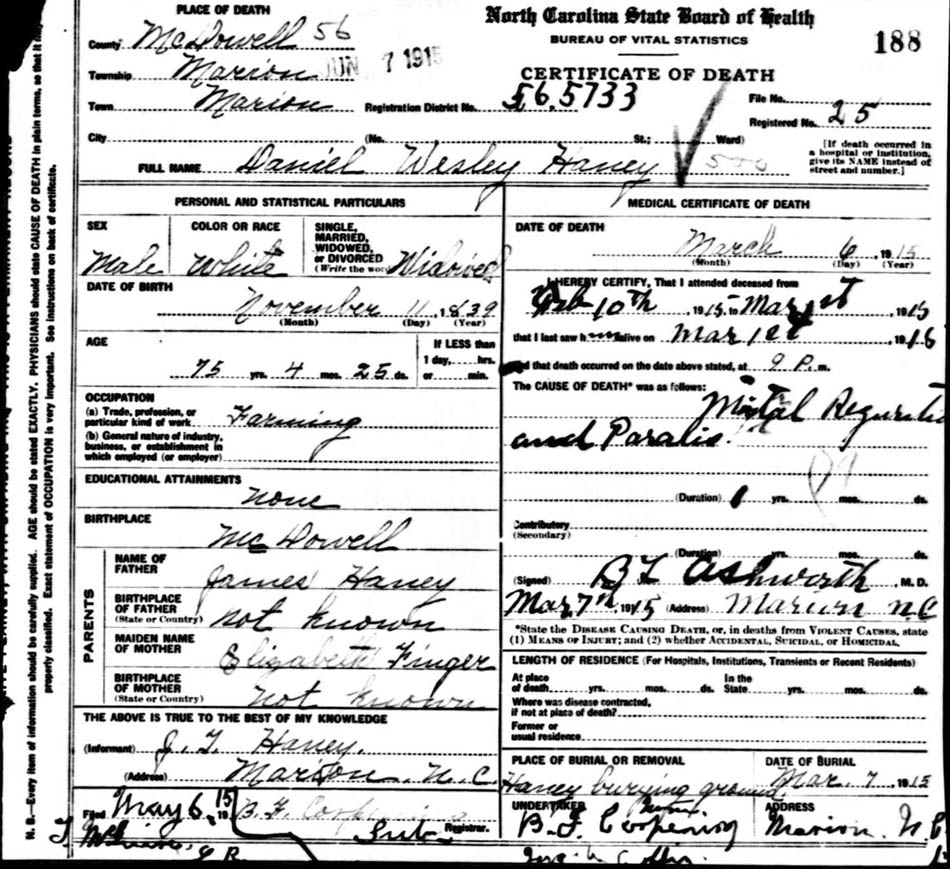 PLACE OF DEATH
County McDowell 56
Township Marion
JUN 7 1915
Town Marion
North Carolina State Board of Health
BUREAU OF VITAL STATISTICS
188
CERTIFICATE OF DEATH
Registration District No. 56.5733
File No.
Registered No. 25
City (No. St.; Ward)
[If death occurred in a hospital or institution, give its NAME instead of street and number.]
FULL NAME Daniel Wesley Haney
500
PERSONAL AND STATISTICAL PARTICULARS
SEX
Male
COLOR OR RACE
White
SINGLE, MARRIED, WIDOWED, or DIVORCED
(Write the word) Widowed
DATE OF BIRTH
November 11, 1839
(Month) (Day) (Year)
AGE
75 yrs. 4 mos. 25 ds.
If LESS than
1 day, hrs.
or min.
OCCUPATION
(a) Trade, profession, or
particular kind of work Farming
(b) General nature of industry,
business, or establishment in
which employed (or employer)
EDUCATIONAL ATTAINMENTS
none
BIRTHPLACE
McDowell
PARENTS
NAME OF
FATHER
James Haney
BIRTHPLACE
OF FATHER
(State or Country)
not known
MAIDEN NAME
OF MOTHER
Elizabeth Finger
BIRTHPLACE
OF MOTHER
(State or Country)
not known
THE ABOVE IS TRUE TO THE BEST OF MY KNOWLEDGE
(Informant) J. T. Haney.
(Address) Marion, N. C.
Filed May 6, 1915 B. F. Coopening
Sub Registrar.
MEDICAL CERTIFICATE OF DEATH
DATE OF DEATH
March 6, 1915
(Month) (Day) (Year)
I HEREBY CERTIFY, That I attended deceased from
Feb 10th, 1915, to Mar 1st, 1915
that I last saw him alive on Mar 1st, 1915
and that death occurred on the date above stated, at 9 P. m.
The CAUSE OF DEATH* was as follows:
Mitral
and Paralis
(Duration) 1 yrs. mos. ds.
Contributory
(Secondary)
(Duration) yrs. mos. ds.
(Signed) B L Ashworth, M. D.
Mar 7th 1915 (Address) Marion N.C
*State the DISEASE CAUSING DEATH, or, in deaths from VIOLENT CAUSES, state
(1) MEANS OF INJURY; and (2) whether ACCIDENTAL, SUICIDAL, or HOMICIDAL.
LENGTH OF RESIDENCE (For Hospitals, Institutions, Transients or Recent Residents)
At place
of death. yrs. mos. ds.
In the
State yrs. mos. ds.
Where was disease contracted,
if not at place of death?
Former or
usual residence
PLACE OF BURIAL OR REMOVAL
Haney burying ground
DATE OF BURIAL
Mar. 7, 1915
UNDERTAKER
B. F. Coopening
ADDRESS
Marion, N. C
N. B.—Every item of information should be carefully supplied. AGE should be stated EXACTLY. PHYSICIANS should state CAUSE OF DEATH in plain terms, so that it
properly classified. Exact statement of OCCUPATION is very important. See instructions on back of certificate.